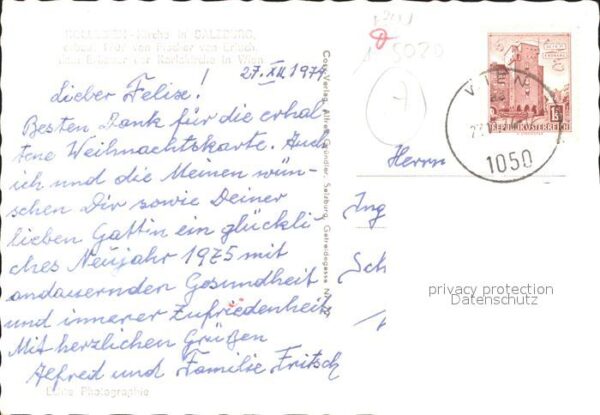 KOLLEGIEN-Kirche in SALZBURG,
erbaut 1707 von Fischer von Erlach,
dem Erbauer der Karlskirche in Wien
27.XII.1974
Lieber Felix!
Besten Dank für die erhal-
tene Weihnachtskarte. Auch
ich und die Meinen wün-
schen Dir sowie Deiner
lieben Gattin ein glückli-
ches Neujahr 1975 mit
andauernden Gesundheit
und innerer Zufriedenheit
Mit herzlichen Grüßen
Alfred und Familie Fritsch
Echte Photographie
Cosy-Verlag, Alfred Gründler, Salzburg, Getreidegasse
5020
WIEN
1050
REPUBLIK ÖSTERREICH
Herrn
Ing
Sch
privacy protection
Datenschutz